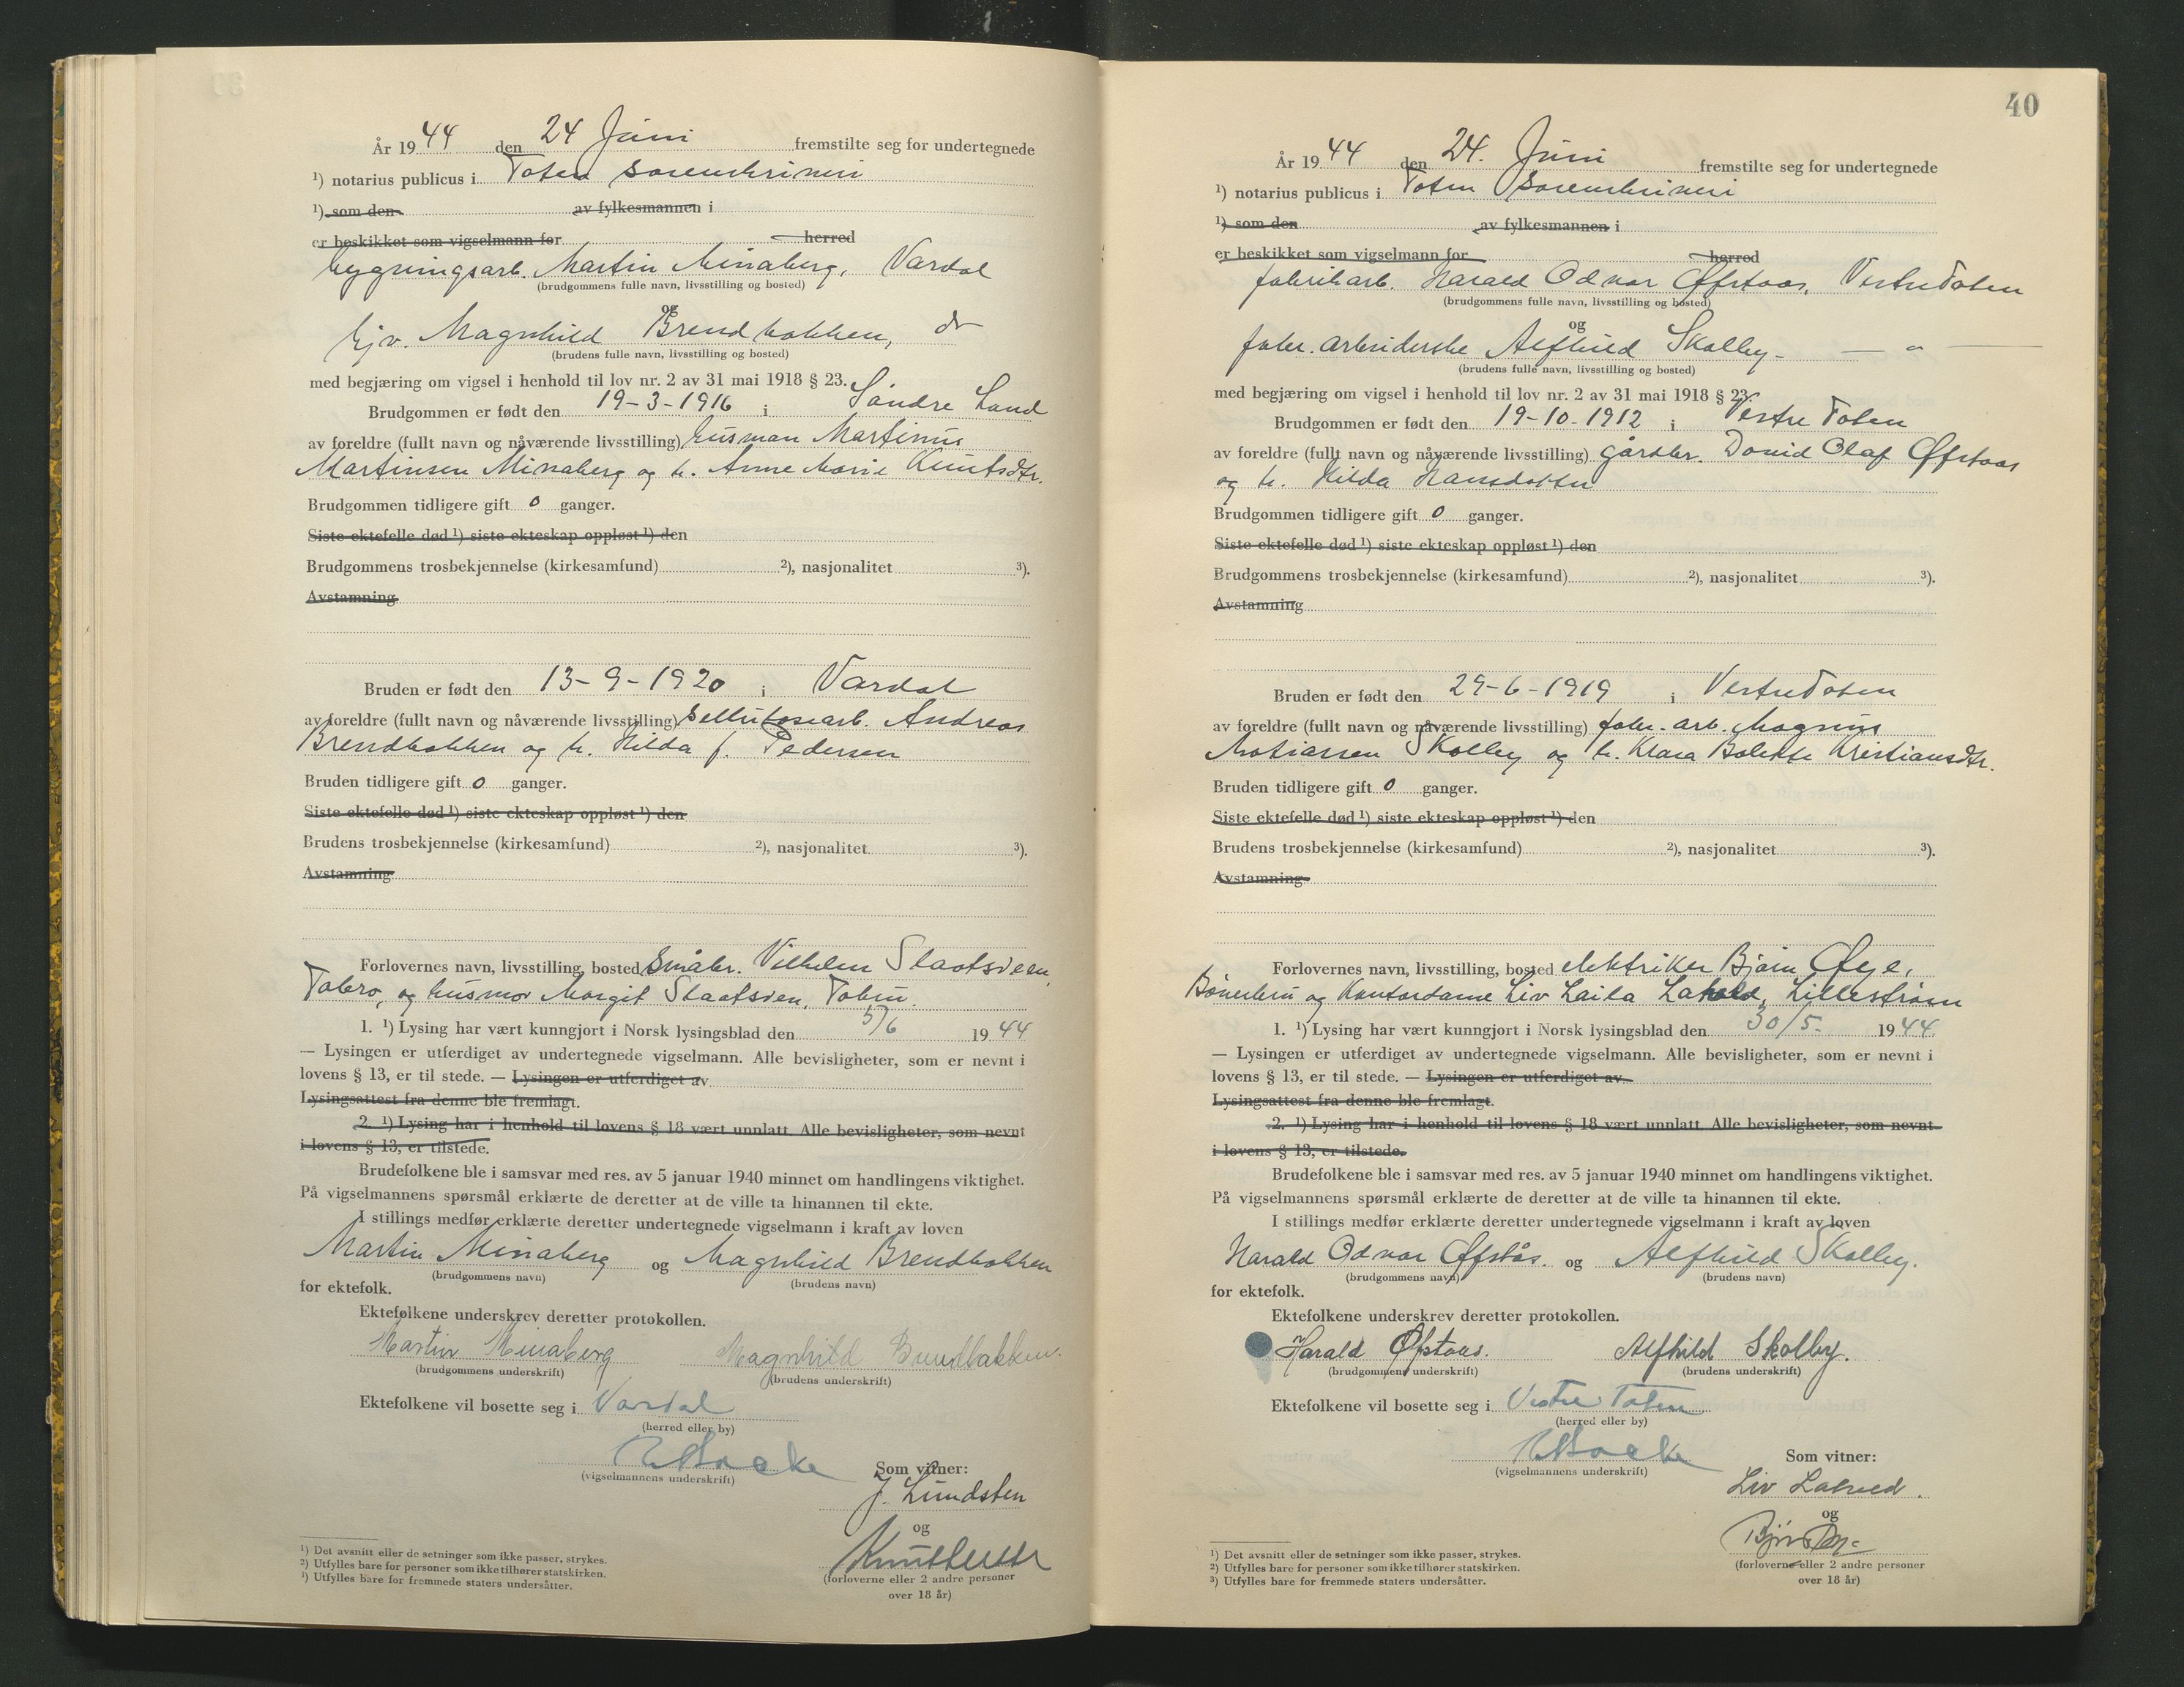 År 1944 den 24 Juni fremstilte seg for undertegnede
¹) notarius publicus i Toten sorenskriveri
¹) som den av fylkesmannen i
er beskikket som vigselmann for herred
bygningsarb. Martin Minaberg, Vardal
(brudgommens fulle navn, livsstilling og bosted)
og
hjv. Magnhild Brendbakken, do
(brudens fulle navn, livsstilling og bosted)
med begjæring om vigsel i henhold til lov nr. 2 av 31 mai 1918 § 23.
Brudgommen er født den 19-3-1916 i Søndre Land
av foreldre (fullt navn og nåværende livsstilling) husman Martinus
Martinsen Minaberg og h. Anne Marie Knutsdtr.
Brudgommen tidligere gift 0 ganger.
Siste ektefelle død ¹) siste ekteskap oppløst ¹) den
Brudgommens trosbekjennelse (kirkesamfund) ²), nasjonalitet ³).
Avstamning
Bruden er født den 13-9-1920 i Vardal
av foreldre (fullt navn og nåværende livsstilling) sellulosearb. Andreas
Brendbakken og h. Hilda f. Pedersen
Bruden tidligere gift 0 ganger.
Siste ektefelle død ¹) siste ekteskap oppløst ¹) den
Brudens trosbekjennelse (kirkesamfund) ²), nasjonalitet ³).
Avstamning
Forlovernes navn, livsstilling, bosted småbr. Vilhelm Slaatsveen,
og husmor Margit Slaatsveen,
1. ¹) Lysing har vært kunngjort i Norsk lysingsblad den 5/6 1944
— Lysingen er utferdiget av undertegnede vigselmann. Alle bevisligheter, som er nevnt i
lovens § 13, er til stede. — Lysingen er utferdiget av
Lysingsattest fra denne ble fremlagt.
2. ¹) Lysing har i henhold til lovens § 18 vært unnlatt. Alle bevisligheter, som nevnt
i lovens § 13, er tilstede.
Brudefolkene ble i samsvar med res. av 5 januar 1940 minnet om handlingens viktighet.
På vigselmannens spørsmål erklærte de deretter at de ville ta hinannen til ekte.
I stillings medfør erklærte deretter undertegnede vigselmann i kraft av loven
Martin Minaberg og Magnhild Brendbakken
(brudgommens navn) (brudens navn)
for ektefolk.
Ektefolkene underskrev deretter protokollen.
Martin Minaberg Magnhild Brendbakken.
(brudgommens underskrift) (brudens underskrift)
Ektefolkene vil bosette seg i Vardal
(herred eller by)
(vigselmannens underskrift)
Som vitner:
J. Lundsten
og
(forloverne eller 2 andre personer
over 18 år)
¹) Det avsnitt eller de setninger som ikke passer, strykes.
²) Utfylles bare for personer som ikke tilhører statskirken.
³) Utfylles bare for fremmede staters undersåtter.
40
År 1944 den 24. Juni fremstilte seg for undertegnede
¹) notarius publicus i Toten sorenskriveri
¹) som den av fylkesmannen i
er beskikket som vigselmann for herred
fabrikarb. Harald Odvar Øfstaas, Vestre Toten
(brudgommens fulle navn, livsstilling og bosted)
og
fabr. arbeiderske Alfhild Skolby - — " —
(brudens fulle navn, livsstilling og bosted)
med begjæring om vigsel i henhold til lov nr. 2 av 31 mai 1918 § 23.
Brudgommen er født den 19-10-1912 i Vestre Toten
av foreldre (fullt navn og nåværende livsstilling) gårdbr. David Olaf Øfstaas
og h. Hilda Hansdotter
Brudgommen tidligere gift 0 ganger.
Siste ektefelle død ¹) siste ekteskap oppløst ¹) den
Brudgommens trosbekjennelse (kirkesamfund) ²), nasjonalitet ³).
Avstamning
Bruden er født den 29-6-1919 i Vestre Toten
av foreldre (fullt navn og nåværende livsstilling) fabr. arb. Magnus
Matiassen Skolby og h. Klara Bolette Kristiansdtr.
Bruden tidligere gift 0 ganger.
Siste ektefelle død ¹) siste ekteskap oppløst ¹) den
Brudens trosbekjennelse (kirkesamfund) ²), nasjonalitet ³).
Avstamning
Forlovernes navn, livsstilling, bosted elektriker Bjørn Øye,
og Kontordame Liv Laila Lakold, Lillestrøm
1. ¹) Lysing har vært kunngjort i Norsk lysingsblad den 30/5. 1944.
— Lysingen er utferdiget av undertegnede vigselmann. Alle bevisligheter, som er nevnt i
lovens § 13, er til stede. — Lysingen er utferdiget av
Lysingsattest fra denne ble fremlagt.
2. ¹) Lysing har i henhold til lovens § 18 vært unnlatt. Alle bevisligheter, som nevnt
i lovens § 13, er tilstede.
Brudefolkene ble i samsvar med res. av 5 januar 1940 minnet om handlingens viktighet.
På vigselmannens spørsmål erklærte de deretter at de ville ta hinannen til ekte.
I stillings medfør erklærte deretter undertegnede vigselmann i kraft av loven
Harald Odvar Øfstås. og Alfhild Skolby.
(brudgommens navn) (brudens navn)
for ektefolk.
Ektefolkene underskrev deretter protokollen.
Harald Øfstaas. Alfhild Skolby.
(brudgommens underskrift) (brudens underskrift)
Ektefolkene vil bosette seg i Vestre Toten
(herred eller by)
(vigselmannens underskrift)
Som vitner:
Liv
og
Bjørn Øye
(forloverne eller 2 andre personer
over 18 år)
¹) Det avsnitt eller de setninger som ikke passer, strykes.
²) Utfylles bare for personer som ikke tilhører statskirken.
³) Utfylles bare for fremmede staters undersåtter.